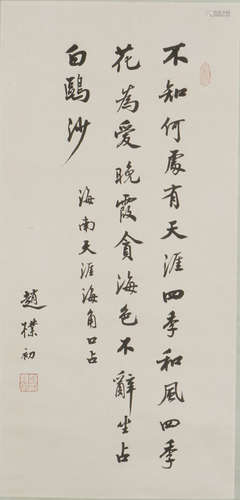 不知何處有天涯四季和風四季
花為愛晚霞貪海色不辭坐占
白鷗沙
海南天涯海角口占
趙樸初